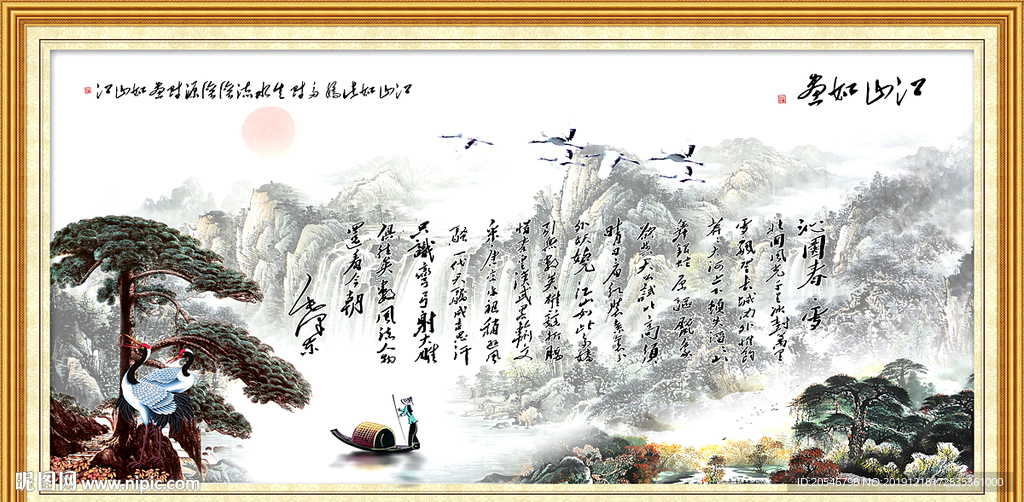 江山如画
沁园春·雪
北国风光千里冰封万里
雪飘望长城内外惟馀
莽莽大河上下顿失滔滔山
舞银蛇原驰蜡象
欲与天公试比高须
晴日看红装素裹分
外妖娆江山如此多娇
引无数英雄竞折腰
惜秦皇汉武略输文
采唐宗宋祖稍逊风
骚一代天骄成吉思汗
只识弯弓射大雕
俱往矣数风流人物
还看今朝
毛泽东
昵图网 www.nipic.com
ID:20546798 NO:20191218172835361000